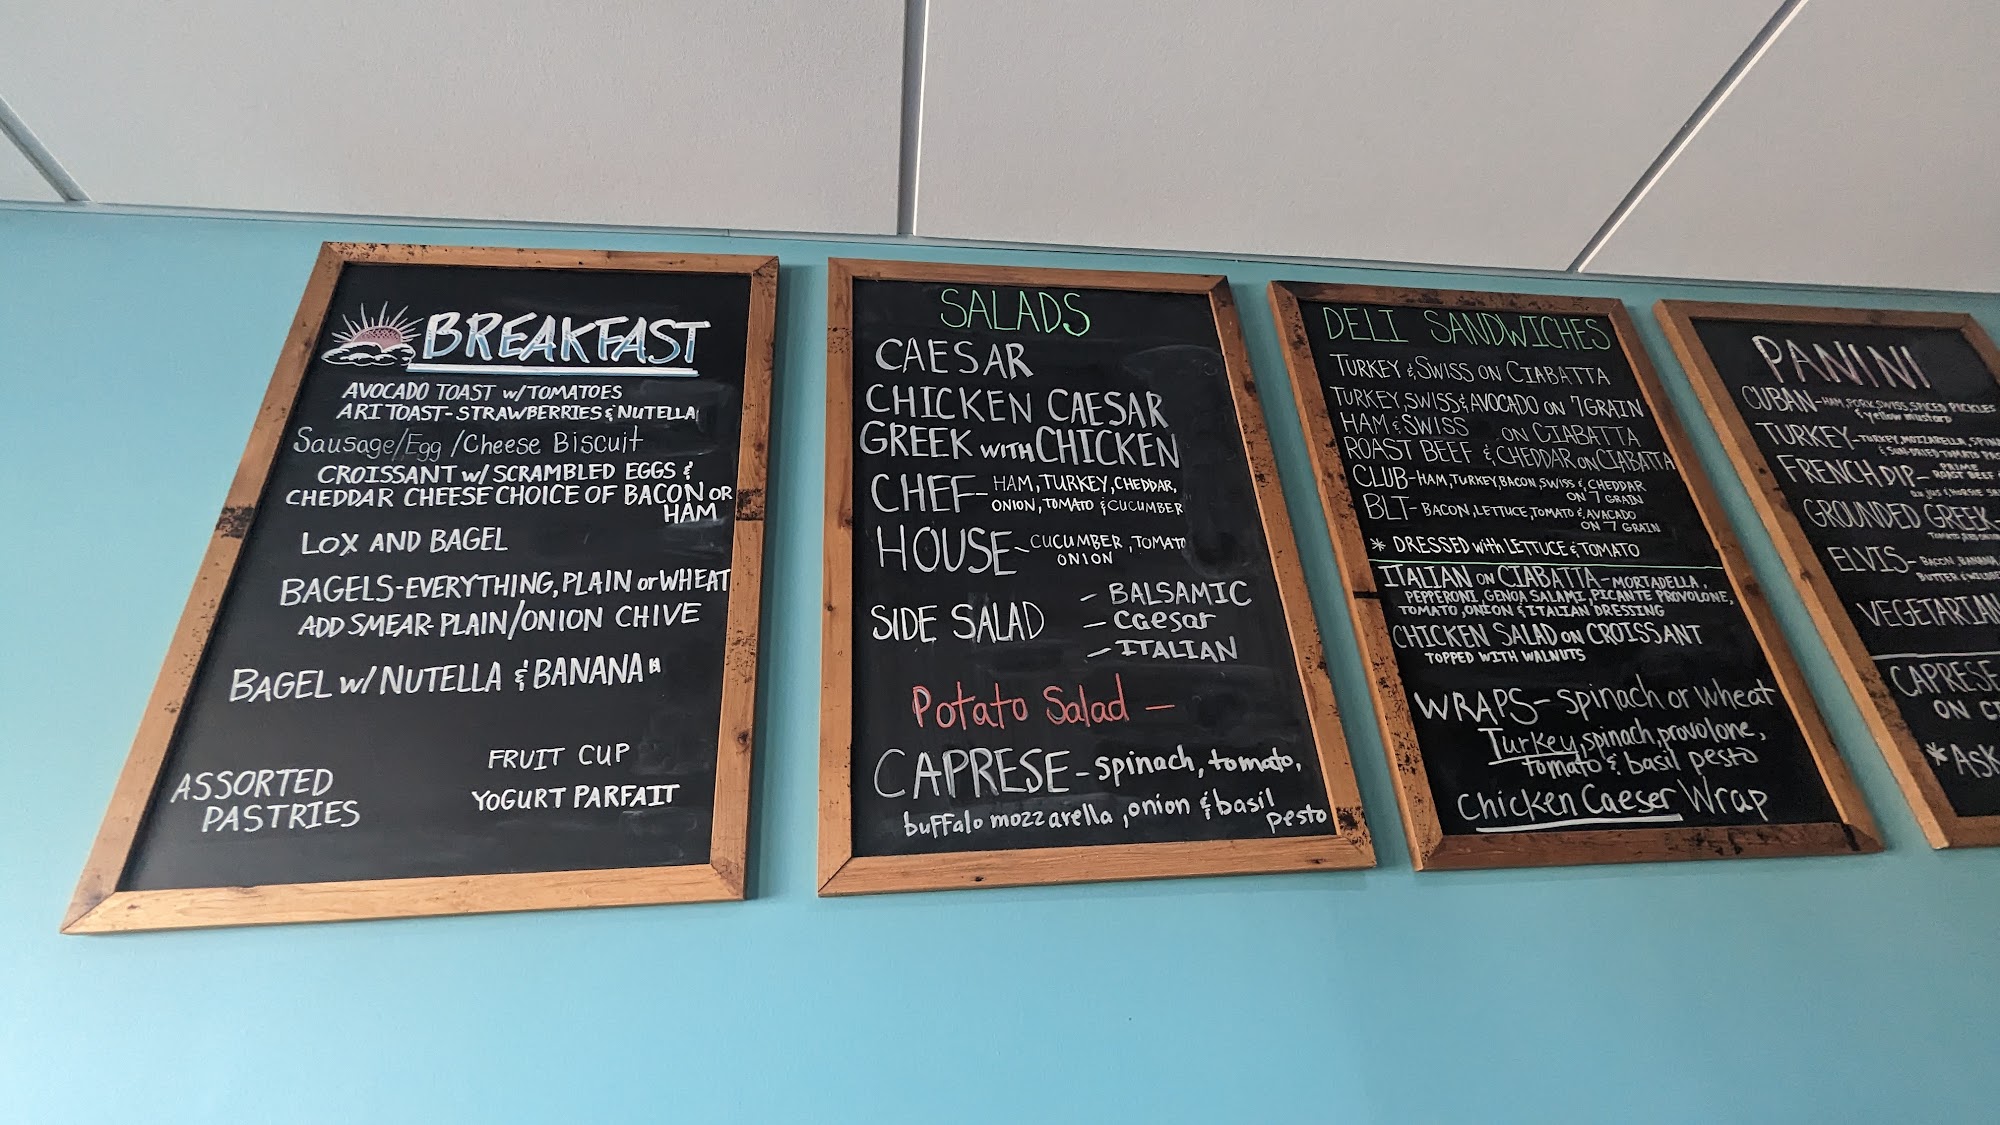 BREAKFAST
AVOCADO TOAST w/TOMATOES
ARI TOAST-STRAWBERRIES & NUTELLA
Sausage/Egg/Cheese Biscuit
CROISSANT w/ SCRAMBLED EGGS &
CHEDDAR CHEESE CHOICE OF BACON OR
HAM
LOX AND BAGEL
BAGELS-EVERYTHING, PLAIN or WHEAT
ADD SMEAR-PLAIN/ONION CHIVE
BAGEL w/ NUTELLA & BANANA
FRUIT CUP
YOGURT PARFAIT
ASSORTED
PASTRIES
SALADS
CAESAR
CHICKEN CAESAR
GREEK WITH CHICKEN
CHEF- HAM, TURKEY, CHEDDAR,
ONION, TOMATO & CUCUMBER
HOUSE- CUCUMBER, TOMATO
ONION
SIDE SALAD
- BALSAMIC
- Caesar
- ITALIAN
Potato Salad -
CAPRESE - spinach, tomato,
buffalo mozzarella, onion & basil
pesto
DELI SANDWICHES
TURKEY & SWISS ON CIABATTA
TURKEY, SWISS & AVOCADO ON 7 GRAIN
HAM & SWISS ON CIABATTA
ROAST BEEF & CHEDDAR ON CIABATTA
CLUB-HAM, TURKEY, BACON, SWISS & CHEDDAR
ON 7 GRAIN
BLT- BACON, LETTUCE, TOMATO & AVACADO
ON 7 GRAIN
* DRESSED WITH LETTUCE & TOMATO
ITALIAN ON CIABATTA-MORTADELLA,
PEPPERONI, GENOA SALAMI, PICANTE PROVOLONE,
TOMATO, ONION & ITALIAN DRESSING
CHICKEN SALAD ON CROISSANT
TOPPED WITH WALNUTS
WRAPS- spinach or wheat
Turkey, spinach, provolone,
Tomato & basil pesto
Chicken Caeser Wrap
PANINI
CUBAN-HAM, PORK, SWISS, SPICED PICKLES
& yellow mustard
TURKEY-TURKEY, MOZZARELLA,
& SUN-DRIED TOMATO
FRENCH DIP- PRIME
ROAST BEEF
GROUNDED GREEK-
ELVIS- BACON, BANANA,
BUTTER &
VEGETARIAN
CAPRESE
ON
* ASK